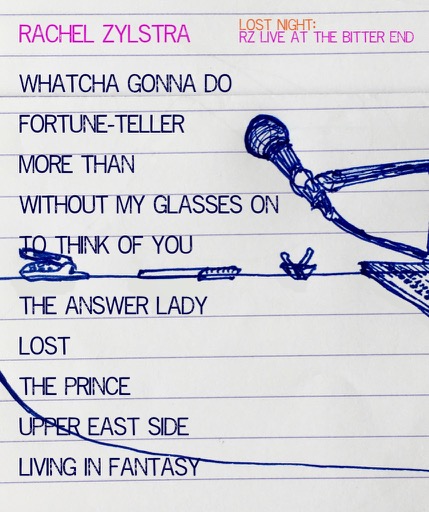 RACHEL ZYLSTRA
LOST NIGHT:
RZ LIVE AT THE BITTER END
WHATCHA GONNA DO
FORTUNE-TELLER
MORE THAN
WITHOUT MY GLASSES ON
TO THINK OF YOU
THE ANSWER LADY
LOST
THE PRINCE
UPPER EAST SIDE
LIVING IN FANTASY